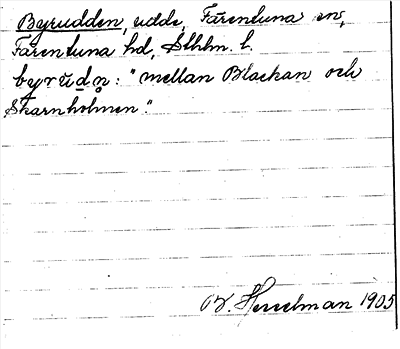 Byrudden, udde, Färentuna sn,
Färentuna hd, Sthlm. l.
byrùdn: "mellan Blackan och
Skarnholmen".
W. Hesselman 1905